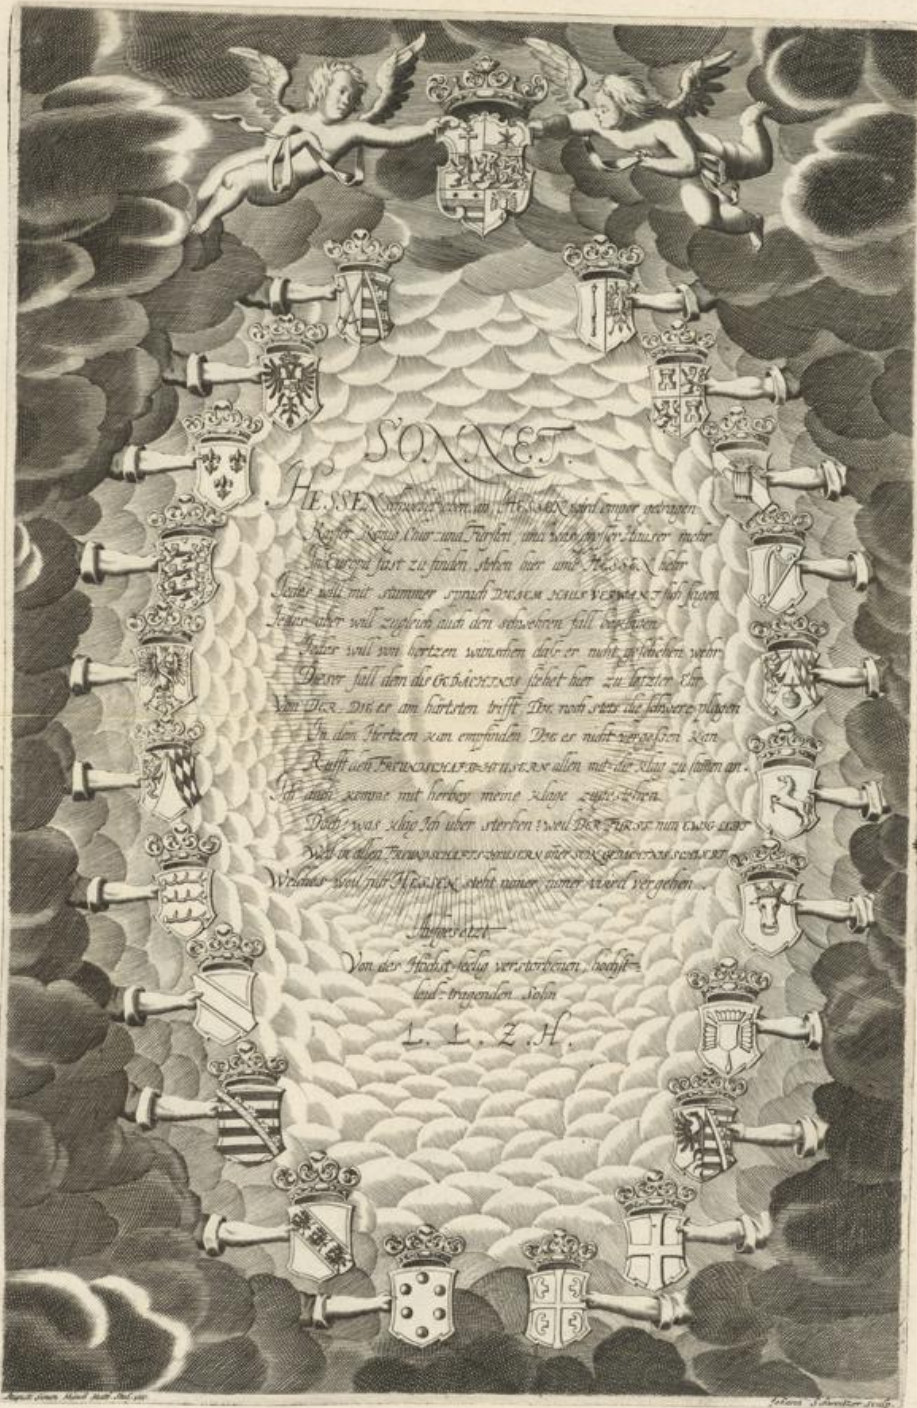 SONNET.
HESSEN schwebt oben an, HESSEN wird empor getragen
Kaÿser König Chur und Fürsten und was grosser Häuser mehr
In Europa fast zu finden stehen hier umb HESSEN hehr
Jedes will mit stummer sprach DIESEM HAUS VERWANT sich sagen
Jedes aber will zugleich auch den schwehren fall beklagen
Jedes will von hertzen wünschen daß er nicht geschehen wehr
Dieser fall dem dis GEDÄCHTNIS stehet hier zu letzter Ehr
Von DER, DIE es am härtsten trifft DIE noch stets die schwere plagen
In dem Hertzen kan empfinden DIE es nicht vergeßen kan
Rufft den FREUNDSCHAFFTS-HEUSERN allen mit der klag zu stimmen an.
Ich auch komme mit herbeÿ meine klage zugestehen
Doch! was klag Ich über sterben? weil DER FÜRST nun EWIG LEBT
Weil in allen FREUNDSCHAFFTS-HEUSERN über SEIN GEDÄCHTNIS SCHWEBT
Welches weil nur HESSEN steht nimer, nimer wird vergehen.
Aufgesetzt
Von des Höchst-seelig verstorbenen, höchst-
leid-tragenden Sohn
L. L. Z. H.
Johann Schweitzer sculp.